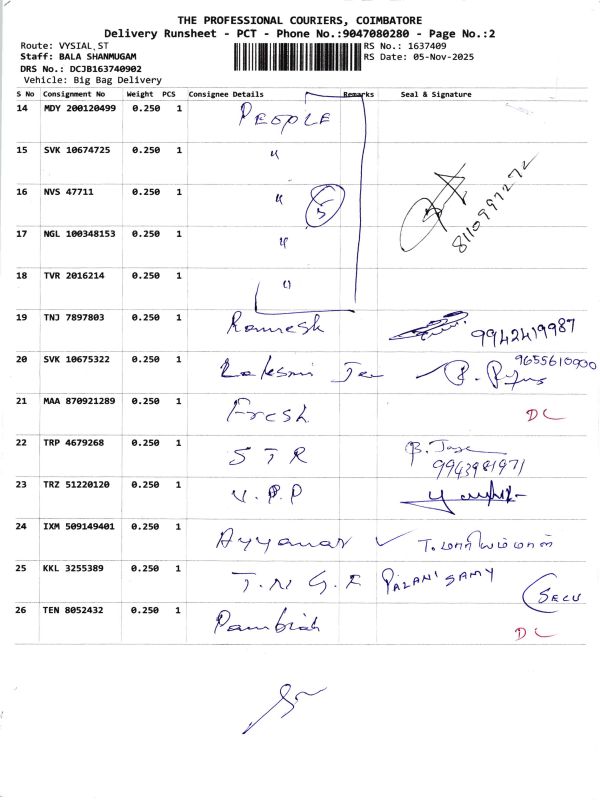 THE PROFESSIONAL COURIERS, COIMBATORE
Delivery Runsheet - PCT - Phone No.:9047080280 - Page No.:2
Route: VYSIAL,ST
RS No.: 1637409
Staff: BALA SHANMUGAM
RS Date: 05-Nov-2025
DRS No.: DCJB163740902
Vehicle: Big Bag Delivery
S No Consignment No Weight PCS Consignee Details Remarks Seal & Signature
14 MDY 200120499 0.250 1 PEOPLE
15 SVK 10674725 0.250 1 "
16 NVS 47711 0.250 1 " 5
8110997272
17 NGL 100348153 0.250 1 "
18 TVR 2016214 0.250 1 "
19 TNJ 7897803 0.250 1 Ramesh 9942419987
20 SVK 10675322 0.250 1 9655610900
21 MAA 870921289 0.250 1 Fresh DC
22 TRP 4679268 0.250 1 STR
9943981971
23 TRZ 51220120 0.250 1 V.P.P
24 IXM 509149401 0.250 1 Ayyanar ✓
25 KKL 3255389 0.250 1 PALANISAMY
SECU
26 TEN 8052432 0.250 1 DC